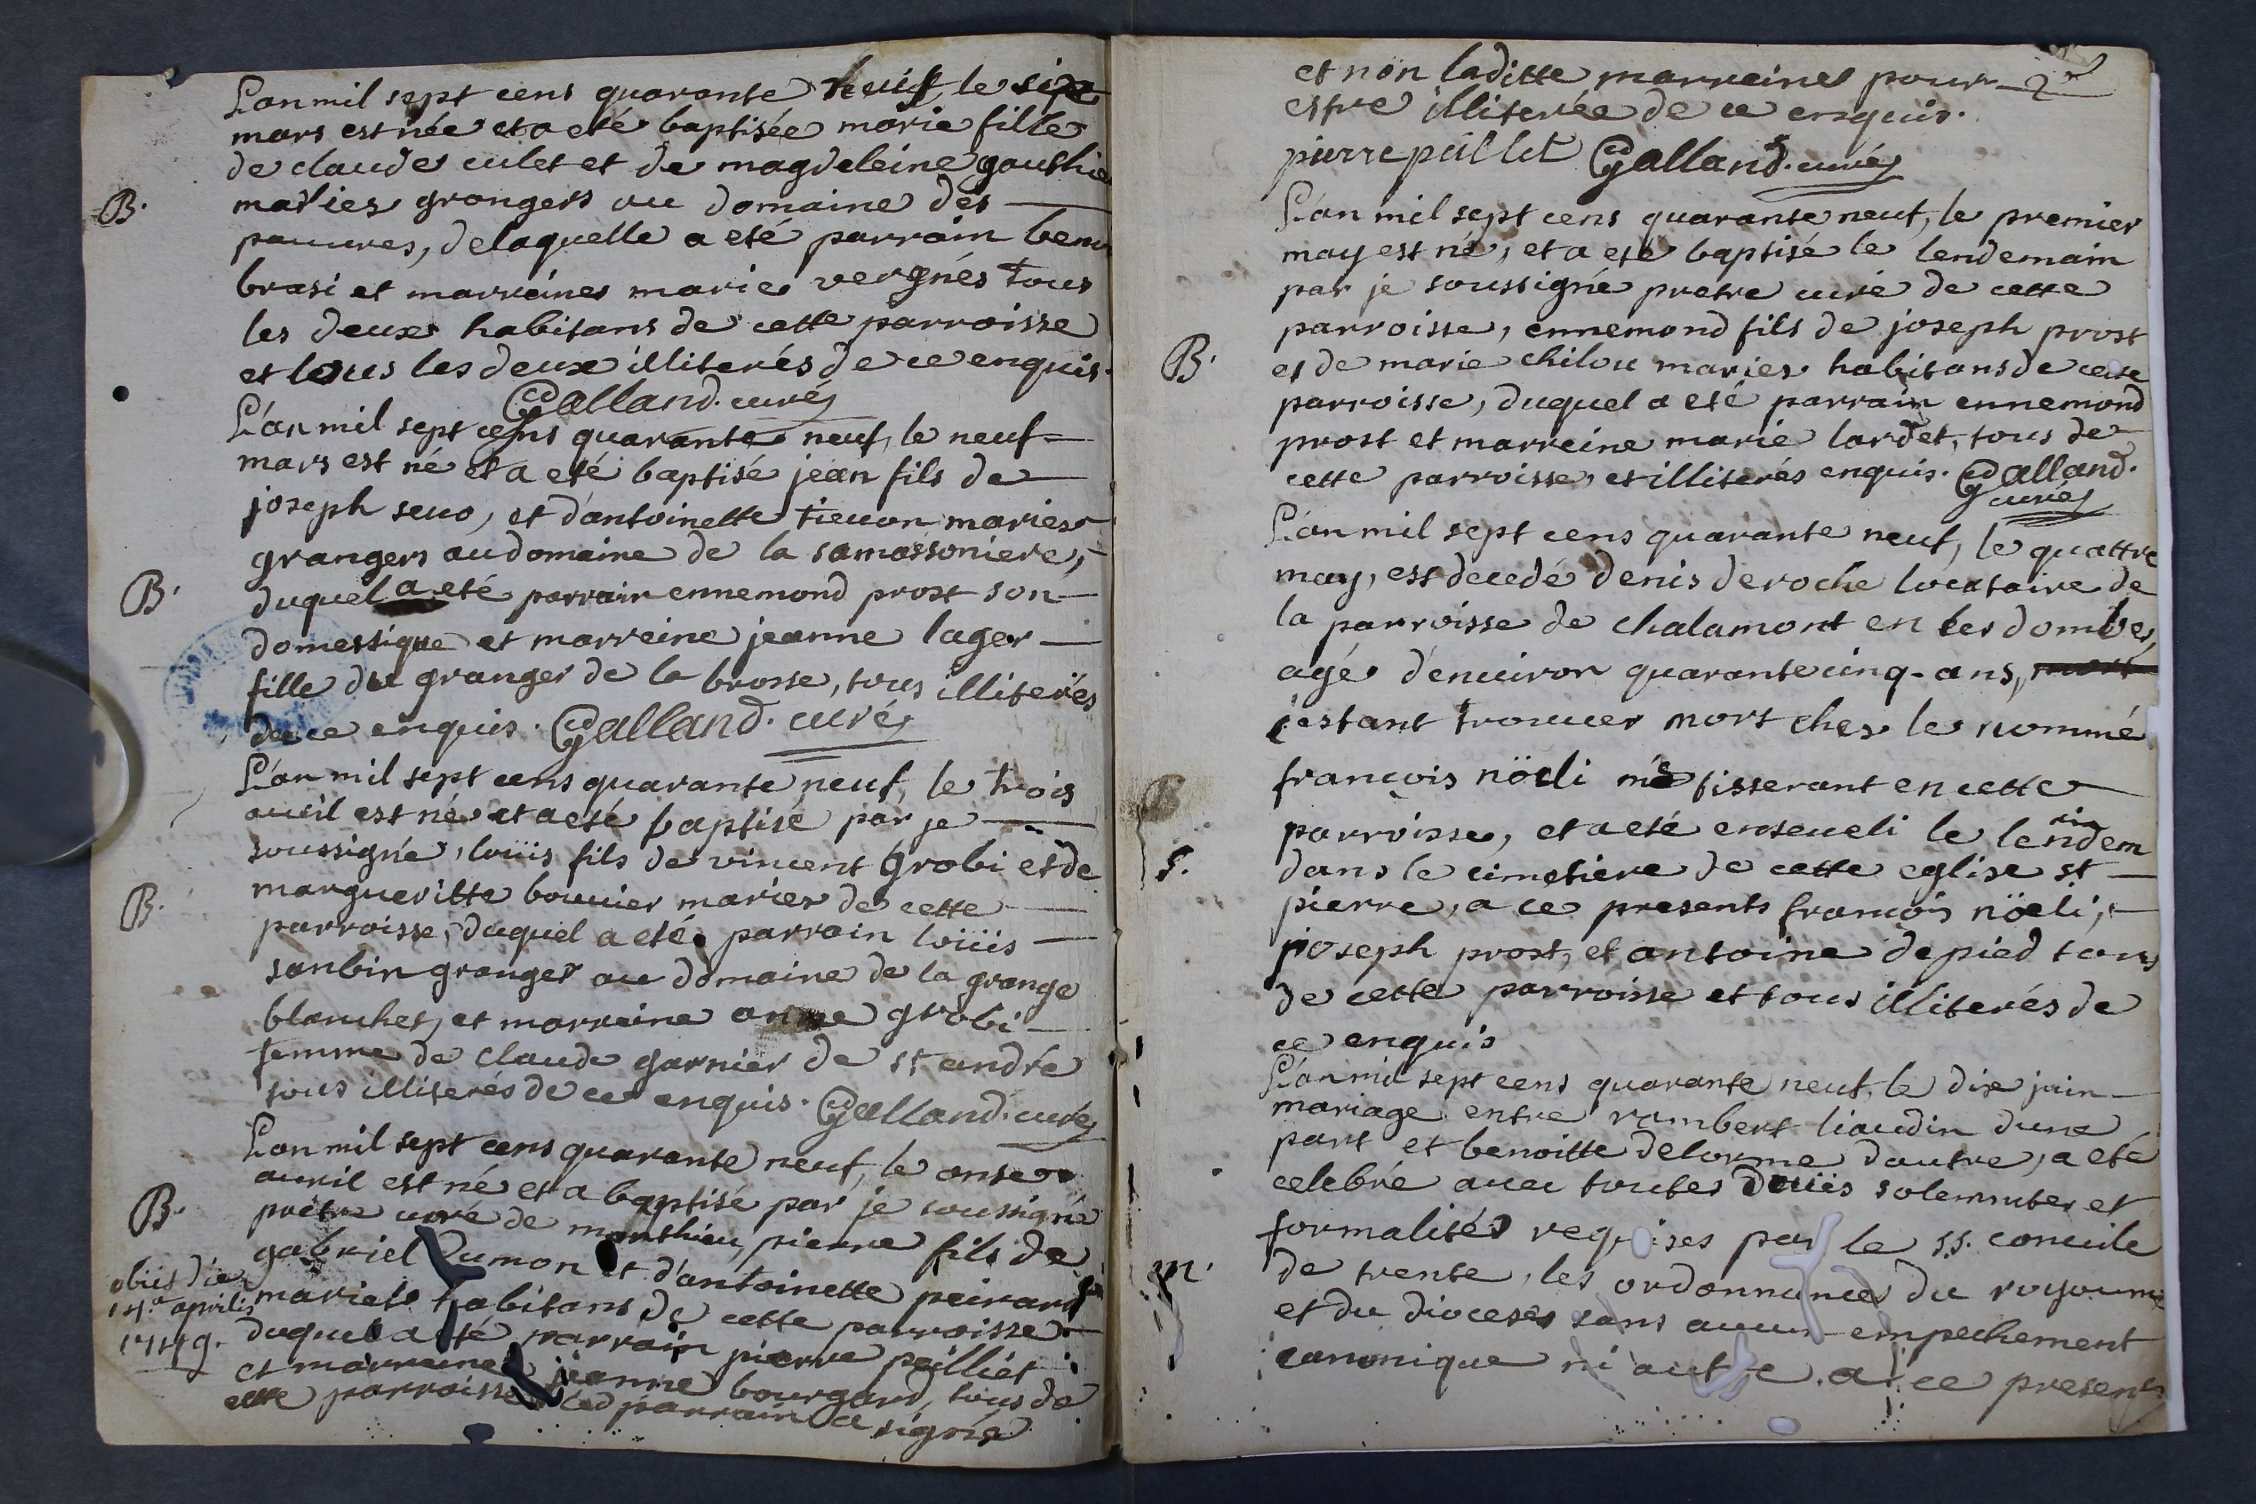 L'an mil sept cens quarante neuf, le six
mars est née et a eté baptisée marie fille
de claude culet et de magdeleine gouthie
B.
maries grangers au domaine des
pauures, de laquelle a eté parrain beno
brasi et marreine marie vergnes tous
les deux habitans de cette parroisse
et tous les deux illiterés de ce enquis.
Galland. curé
L'an mil sept cens quarante neuf, le neuf
mars est né et a eté baptisé jean fils de
joseph seuo, et d'antoinette tieuon maries
grangers au domaine de la samassoniere,
B.
duquel a eté parrain ennemond prost son
domestique et marreine jeanne lager
fille du granger de la brosse, tous illiterés
de ce enquis. Galland. curé
L'an mil sept cens quarante neuf, le trois
auril est né et a eté baptisé par je
soussigné, loüis fils de vincent Grobi et de
margueritte bouuier maries de cette
B.
parroisse, duquel a eté parrain loüis
sanbin granger au domaine de la grange
blanches, et marreine anne grobi
femme de claude garnier de st andré
tous illiterés de ce enquis. Galland. curé
L'an mil sept cens quarante neuf, le onse
auril est né et a baptisé par je soussigné
B.
prètre curé de monthieu, pierre fils de
gabriel Dumon et d'antoinette peirard
obiit die
14.a aprilis
1749.
mariés habitans de cette parroisse
duquel a eté parrain pierre peilliet
et marreine jeanne bourgard, tous de
cette parroisse led parrain a signé
2me
et non laditte marreine pour
estre illiterée de ce enquis.
pierre peillet Galland. curé
L'an mil sept cens quarante neuf, le premier
may est né, et a eté baptisé le lendemain
par je soussigné pretre curé de cette
parroisse, ennemond fils de joseph prost
B.
et de marie chilou maries habitans de cette
parroisse, duquel a eté parrain ennemond
prost et marreine marie lardet, tous de
cette parroisse, et illiterés enquis. Galland.
curé
L'an mil sept cens quarante neuf, le quattre
may, est decedé denis deroche locataire de
la parroisse de chalamont en les dombes,
agé d'enuiron quarante cinq ans, mort
estant trouuer mort ches le nommé
françois nöeli tisserant en cette
parroisse, et a eté enseueli le lendemain
S.
dans le cimetiere de cette eglise st
pierre, a ce presents françois nöeli,
joseph prost, et antoine depied tous
de cette parroisse et tous illiterés de
ce enquis
L'an mil sept cens quarante neuf, le dix juin
mariage entre rambert liaudin dune
part et benoitte delorme d'autre, a eté
celebré auec toutes solemnites et
formalités requises par le s.s. concile
m.
de trente, les ordonnances du royoume
et du dioceses sans aucun empechement
canonique ni autre. a ce presents